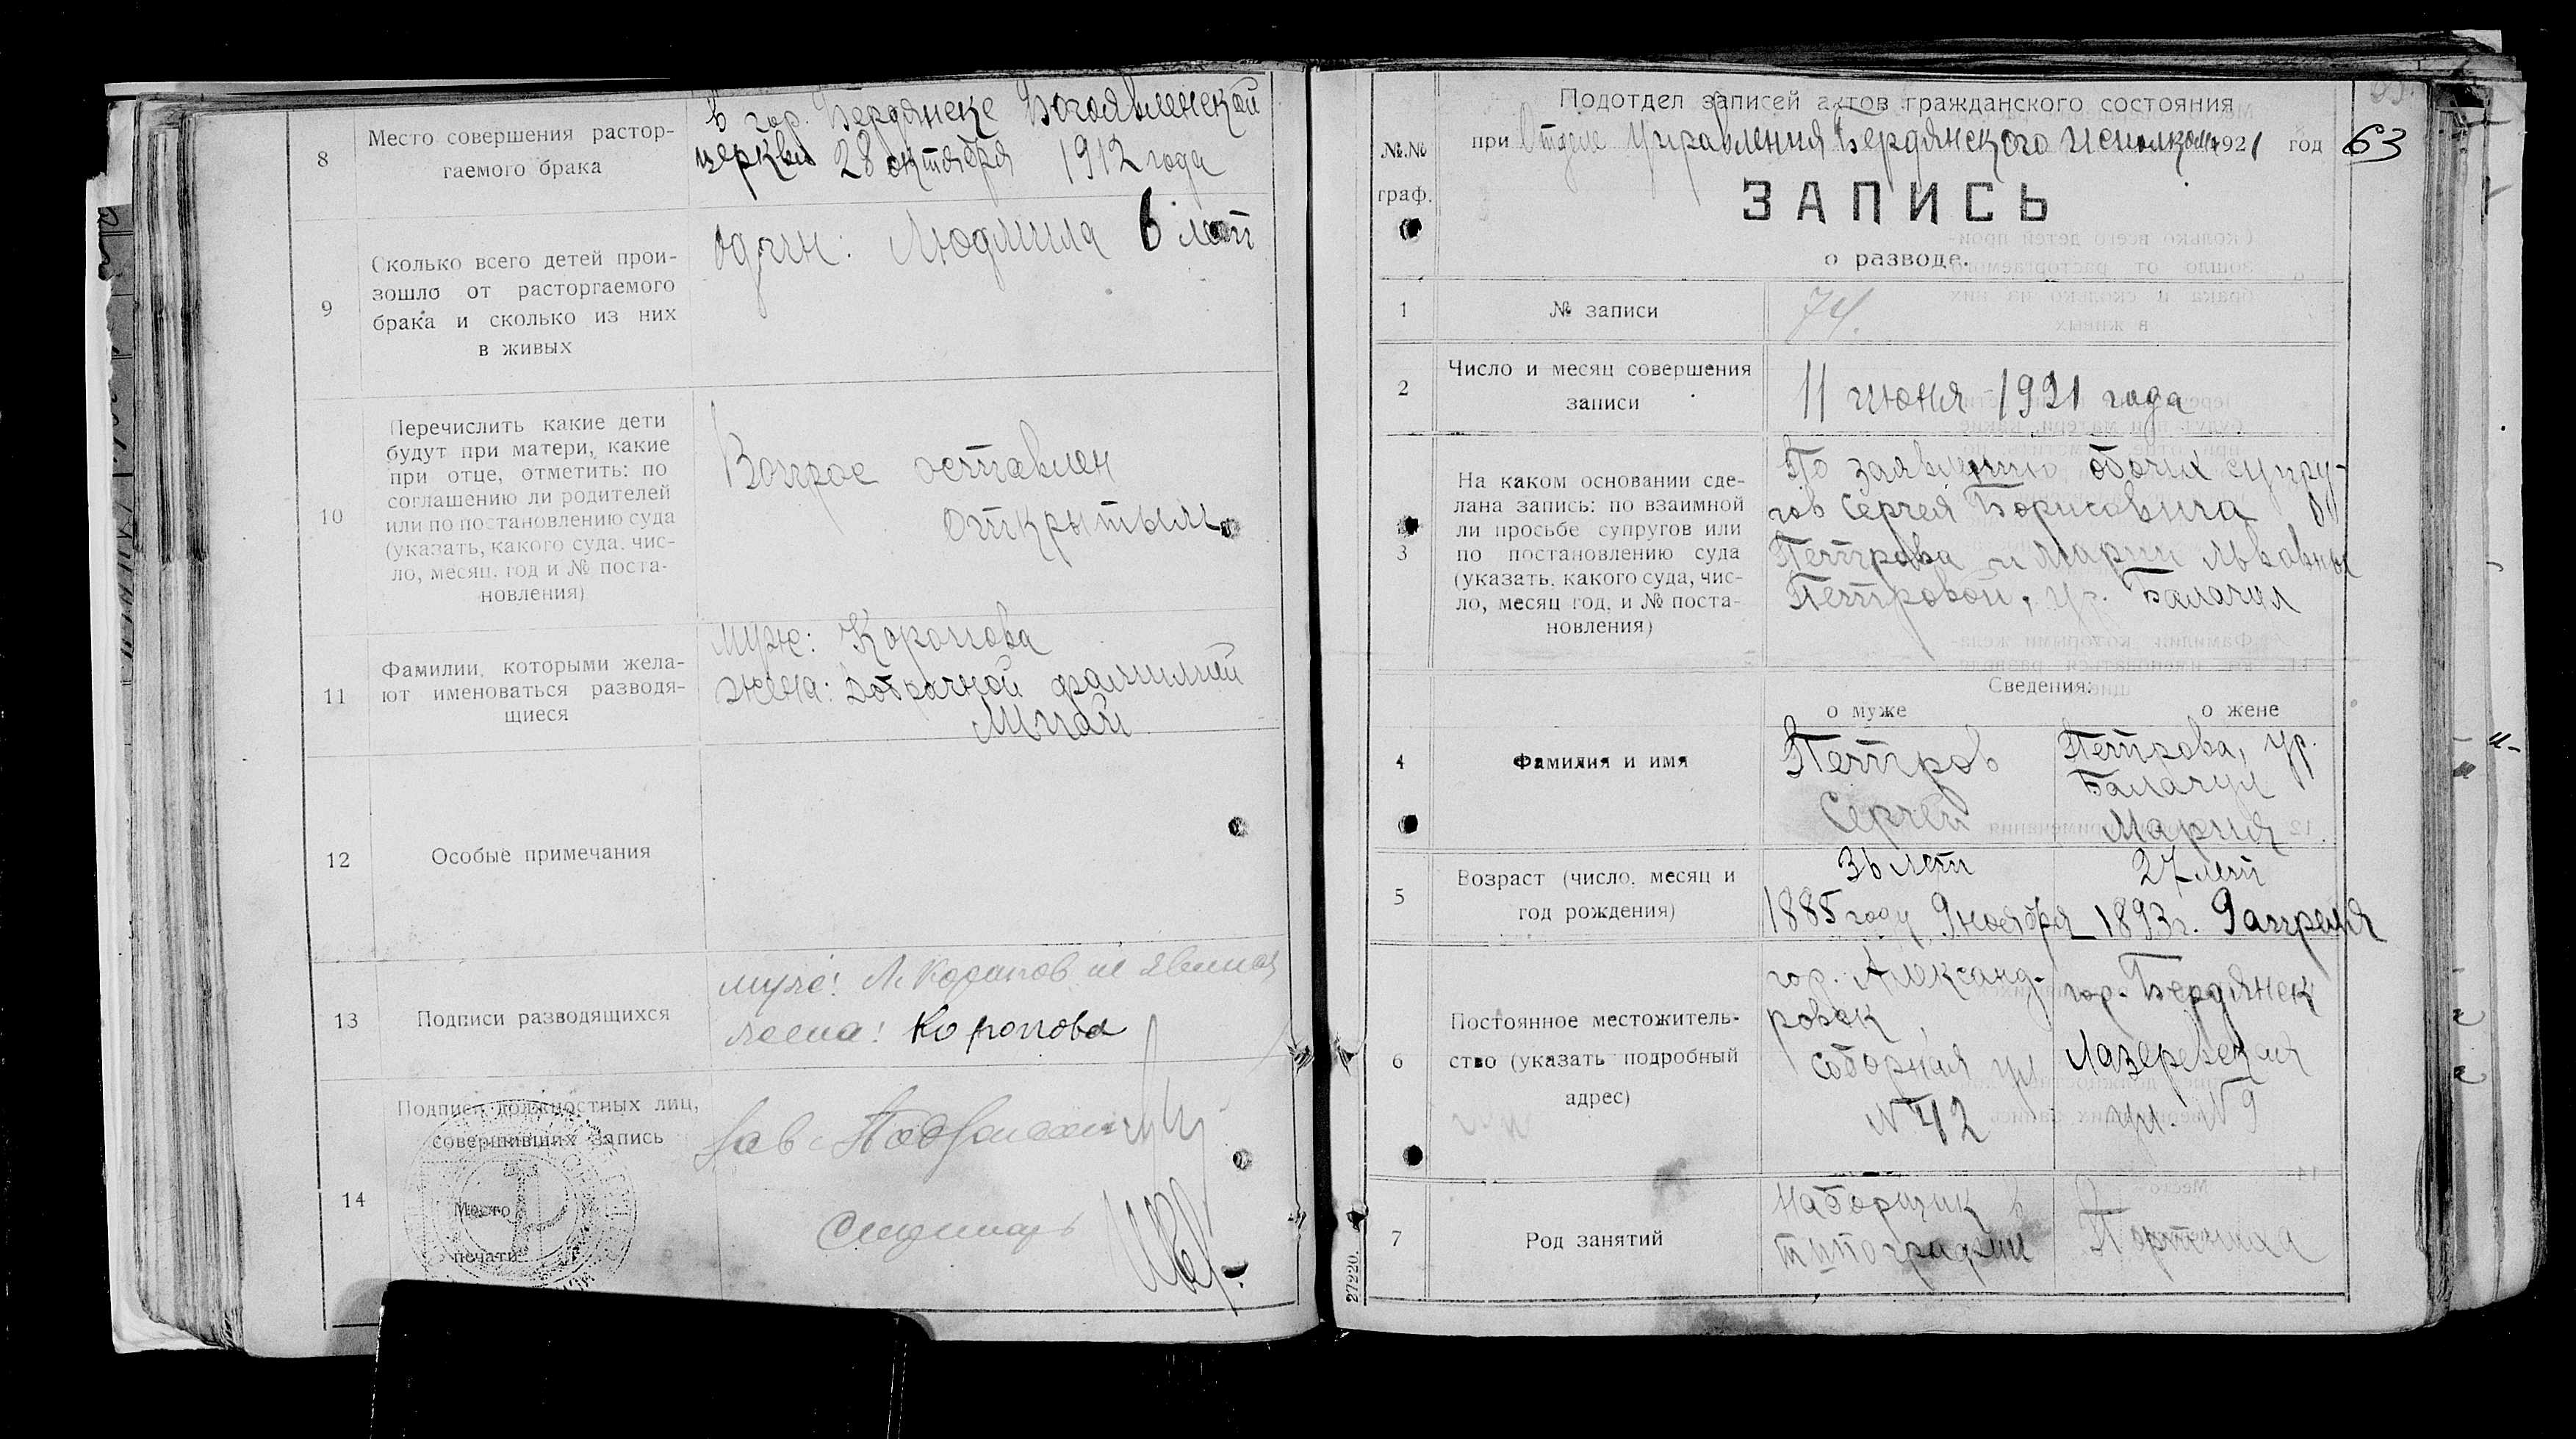 8
Место совершения растор-
гаемого брака
в гор. Бердянске Богоявленской
церкви 28 октября 1912 года
9
Сколько всего детей прои-
зошло от расторгаемого
брака и сколько из них
в живых
один: Людмила 6 лет
10
Перечислить какие дети
будут при матери, какие
при отце, отметить: по
соглашению ли родителей
или по постановлению суда
(указать, какого суда, чис-
ло, месяц, год и № поста-
новления)
Вопрос оставлен
открытым
11
Фамилии, которыми жела-
ют именоваться разводя-
щиеся
муж: Коропова
жена: добрачной фамилией
12
Особые примечания
13
Подписи разводящихся
муж: Коропов не явился
жена: Коропова
14
Подписи должностных лиц,
совершивших запись
Место
печати
Зав. Подотделом
Секретарь
№.№
граф.
Подотдел записей актов гражданского состояния
при Отделе Управления Бердянского Исполкома 1921 год
63
ЗАПИСЬ
о разводе.
1
№ записи
74.
2
Число и месяц совершения
записи
11 июня 1921 года
3
На каком основании сде-
лана запись: по взаимной
ли просьбе супругов или
по постановлению суда
(указать, какого суда, чис-
ло, месяц год, и № поста-
новления)
По заявлению обоих супру-
гов Сергея Борисовича
Петрова и Марии Львовны
Петровой, ур. Балагул
Сведения:
о муже
о жене
4
Фамилия и имя
Петров
Сергей
Петрова, ур.
Балагул
Мария
5
Возраст (число, месяц и
год рождения)
36 лет
1885 году 9 ноября
27 лет
1893 г. 9 апреля
6
Постоянное местожитель-
ство (указать подробный
адрес)
гор. Александ-
ровск,
Соборная ул
№ 42
гор. Бердянск
Лазеревская
ул. № 9
7
Род занятий
Наборщик в
типографии
Портниха
27220.